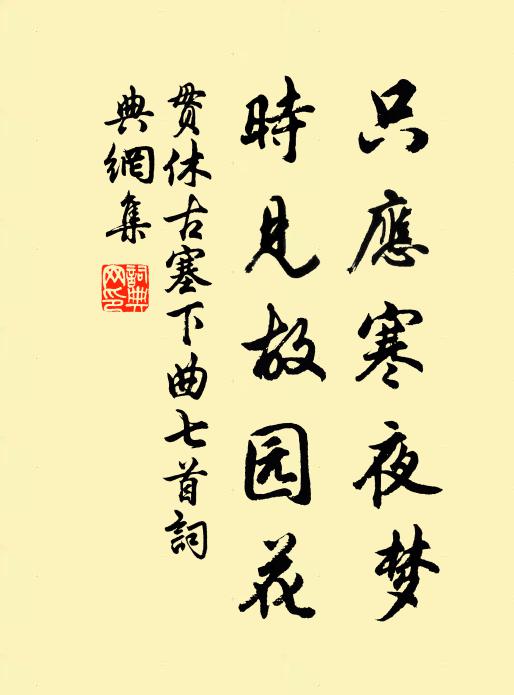 只應寒夜梦
時見故园花
貫休古塞下曲七首詞
典網集
詞典网印